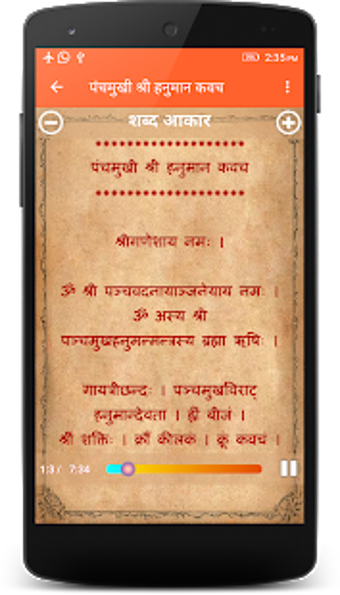 2:35PM
पंचमुखी श्री हनुमान कवच
शब्द आकार
********************
पंचमुखी श्री हनुमान कवच
********************
श्रीगणेशाय नमः ।
ॐ श्री पञ्चवदनायाञ्जनेयाय नमः ।
ॐ अस्य श्री
पञ्चमुखहनुमन्मन्त्रस्य ब्रह्मा ऋषिः ।
गायत्रीछन्दः । पञ्चमुखविराट्
हनुमान्देवता । ह्रीं बीजं ।
श्रीं शक्तिः । क्रौं कीलकं । क्रूं कवचं ।
1:3 / 7:34